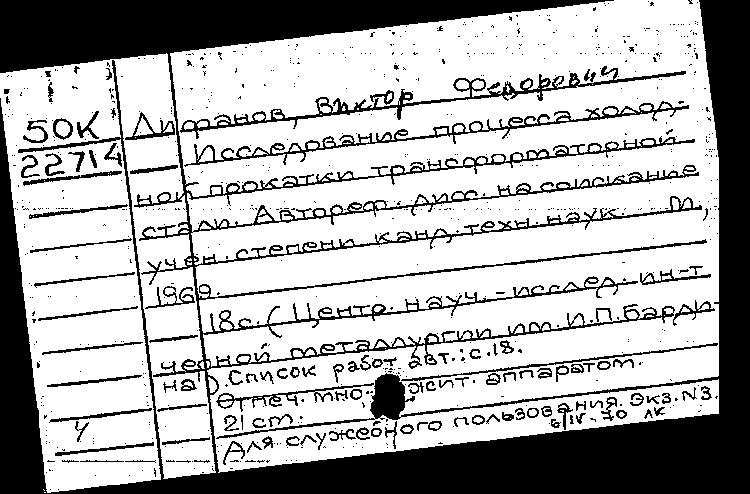 50К
22714
Лифанов, Виктор Федорович
Исследование процесса холод-
ной прокатки трансформаторной
стали. Автореф. дисс. на соискание
учен. степени канд. техн. наук. М,
1969.
18с. (Центр. науч.-исслед. ин-т
черной металлургии им. И.П.Барди-
на). Список работ авт.: с.18.
Отпеч. мно жит. аппаратом.
21 cm.
Для служебного пользования. Экз. N3.
6/IV-70 ЛК